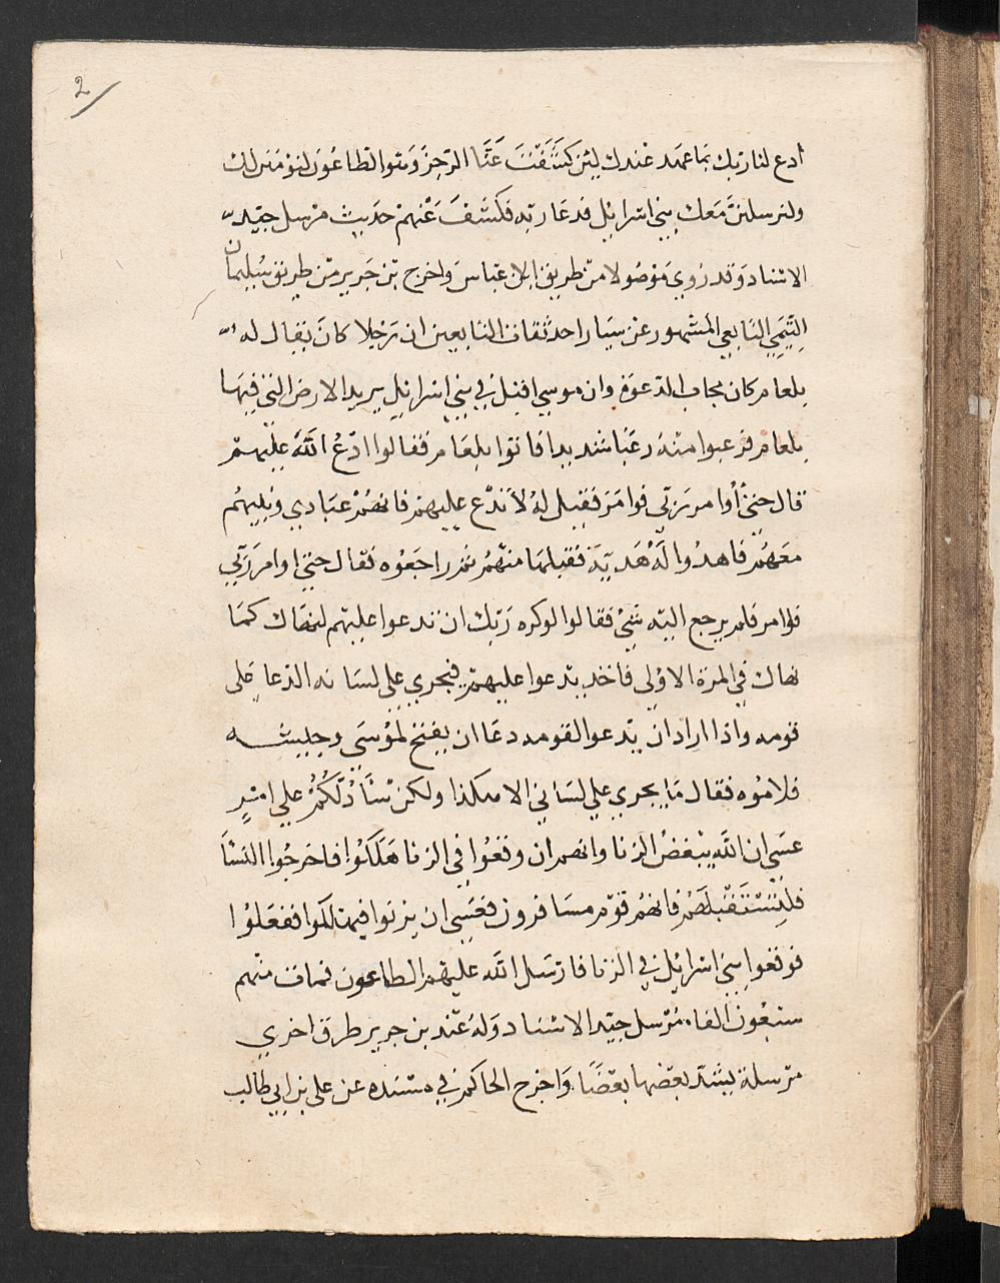 2
ادع لنا ربك بما عهد عندك لئن كشفت عنا الرجز وهو الطاعون لنؤمنن لك
ولنرسلن معك بني اسرائيل فدعا ربه فكشف عنهم حديث مرسل جيد
الاسناد وقد روي موصولا من طريق ابن عباس واخرج بن جرير من طريق سليمان
التيمي التابعي المشهور عن سيار احد ثقات التابعين ان رجلا كان يقال له
بلعام كان مجاب الدعوة وان موسي اقبل في بني اسرائيل يريد الارض التي فيها
بلعام فرعبوا منه رعبا شديدا فاتوا بلعام فقالوا ادع الله عليهم
قال حتي أوامر ربي فوامر فقيل له لا تدع عليهم فانهم عبادي ونبيهم
معهم فاهدوا له هدية فقبلها منهم ثم راجعوه فقال حتي اوامر ربي
فوامر فلم يرجع اليه شي فقالوا لو كره ربك ان تدعوا عليهم لنهاك كما
نهاك في المرة الاولي فاخذ يدعوا عليهم فيجري علي لسانه الدعا علي
قومه واذا اراد ان يدعو القومه دعا ان يفتح لموسي وجيشه
فلاموه فقال ما يجري علي لساني الا هكذا ولكن سادلكم علي امر
عسي ان الله يبغض الزنا وانهم ان وقعوا في الزنا هلكوا فاخرجوا النسا
فليستقبلهم فانهم قوم مسافرون فعسي ان يزنوا فيهلكوا ففعلوا
فوقعوا بني اسرائيل في الزنا فارسل الله عليهم الطاعون فمات منهم
سبعون الفا. مرسل جيد الاسناد وله عند بن جرير طرق اخري
مرسلة يشد بعضها بعضا واخرج الحاكم في مسنده عن علي بن ابي طالب